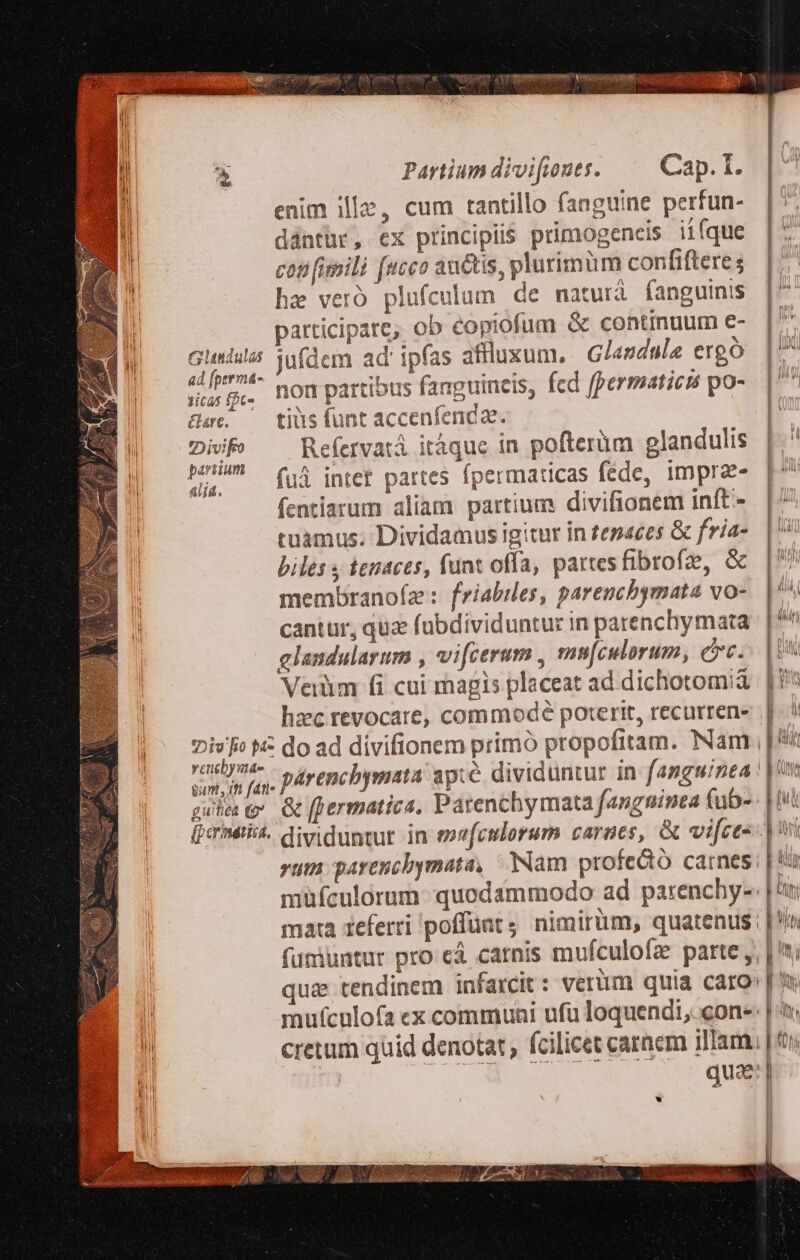 2 Partium divisiones. Cap. I.
enim illæ, cum tantillo ſanguine perfun-
dántur, ex principiis primogeneis iiſque
conſimili ſucco auctis, plurimùm conſiſtere;
hæ verò pluſculum de naturâ ſanguinis
participare, ob copioſum & continuum e-
juſdem ad ipſas affluxum. Glandulæ ergò
non partibus ſanguineis, ſed ſpermaticis po-
tiùs ſunt accenſendæ.
Glandulas
ad ſperma-
ticas ſpe-
ctare.
Reſervatâ itáque in poſterùm glandulis
ſuâ inter partes ſpermaticas ſede, impræ-
ſentiarum aliam partium diviſionem inſti-
tuàmus. Dividamus igitur in tenaces & fria-
biles; tenaces, ſunt oſſa, partes fibroſæ, &
membranoſæ: friabiles, parenchymata vo-
cantur, quæ ſubdividuntur in parenchymata
glandularum, viſcerum, muſculorum, &c.
Diviſio
partium
alia.
Verùm ſi cui magis placeat ad dichotomiâ
hæc revocare, commodè poterit, recurren-
do ad diviſionem primò propoſitam. Nam
párenchymata aptè dividuntur in ſanguinea
& ſpermatica. Parenchymata ſanguinea ſub-
dividuntur in muſculorum carnes, & viſce-
rum parenchymata. Nam profectò carnes
muſculorum quodammodo ad parenchy-
mata referri poſſunt; nimirùm, quatenus
ſumuntur pro eâ carnis muſculoſæ parte,
quæ tendinem infarcit: verùm quia caro
muſculoſa ex communi uſu loquendi, con-
cretum quid denotat, ſcilicet carnem illam
Diviſio pa-
renchyma-
tum, in ſan-
guinea &
ſpermatica.
quæ